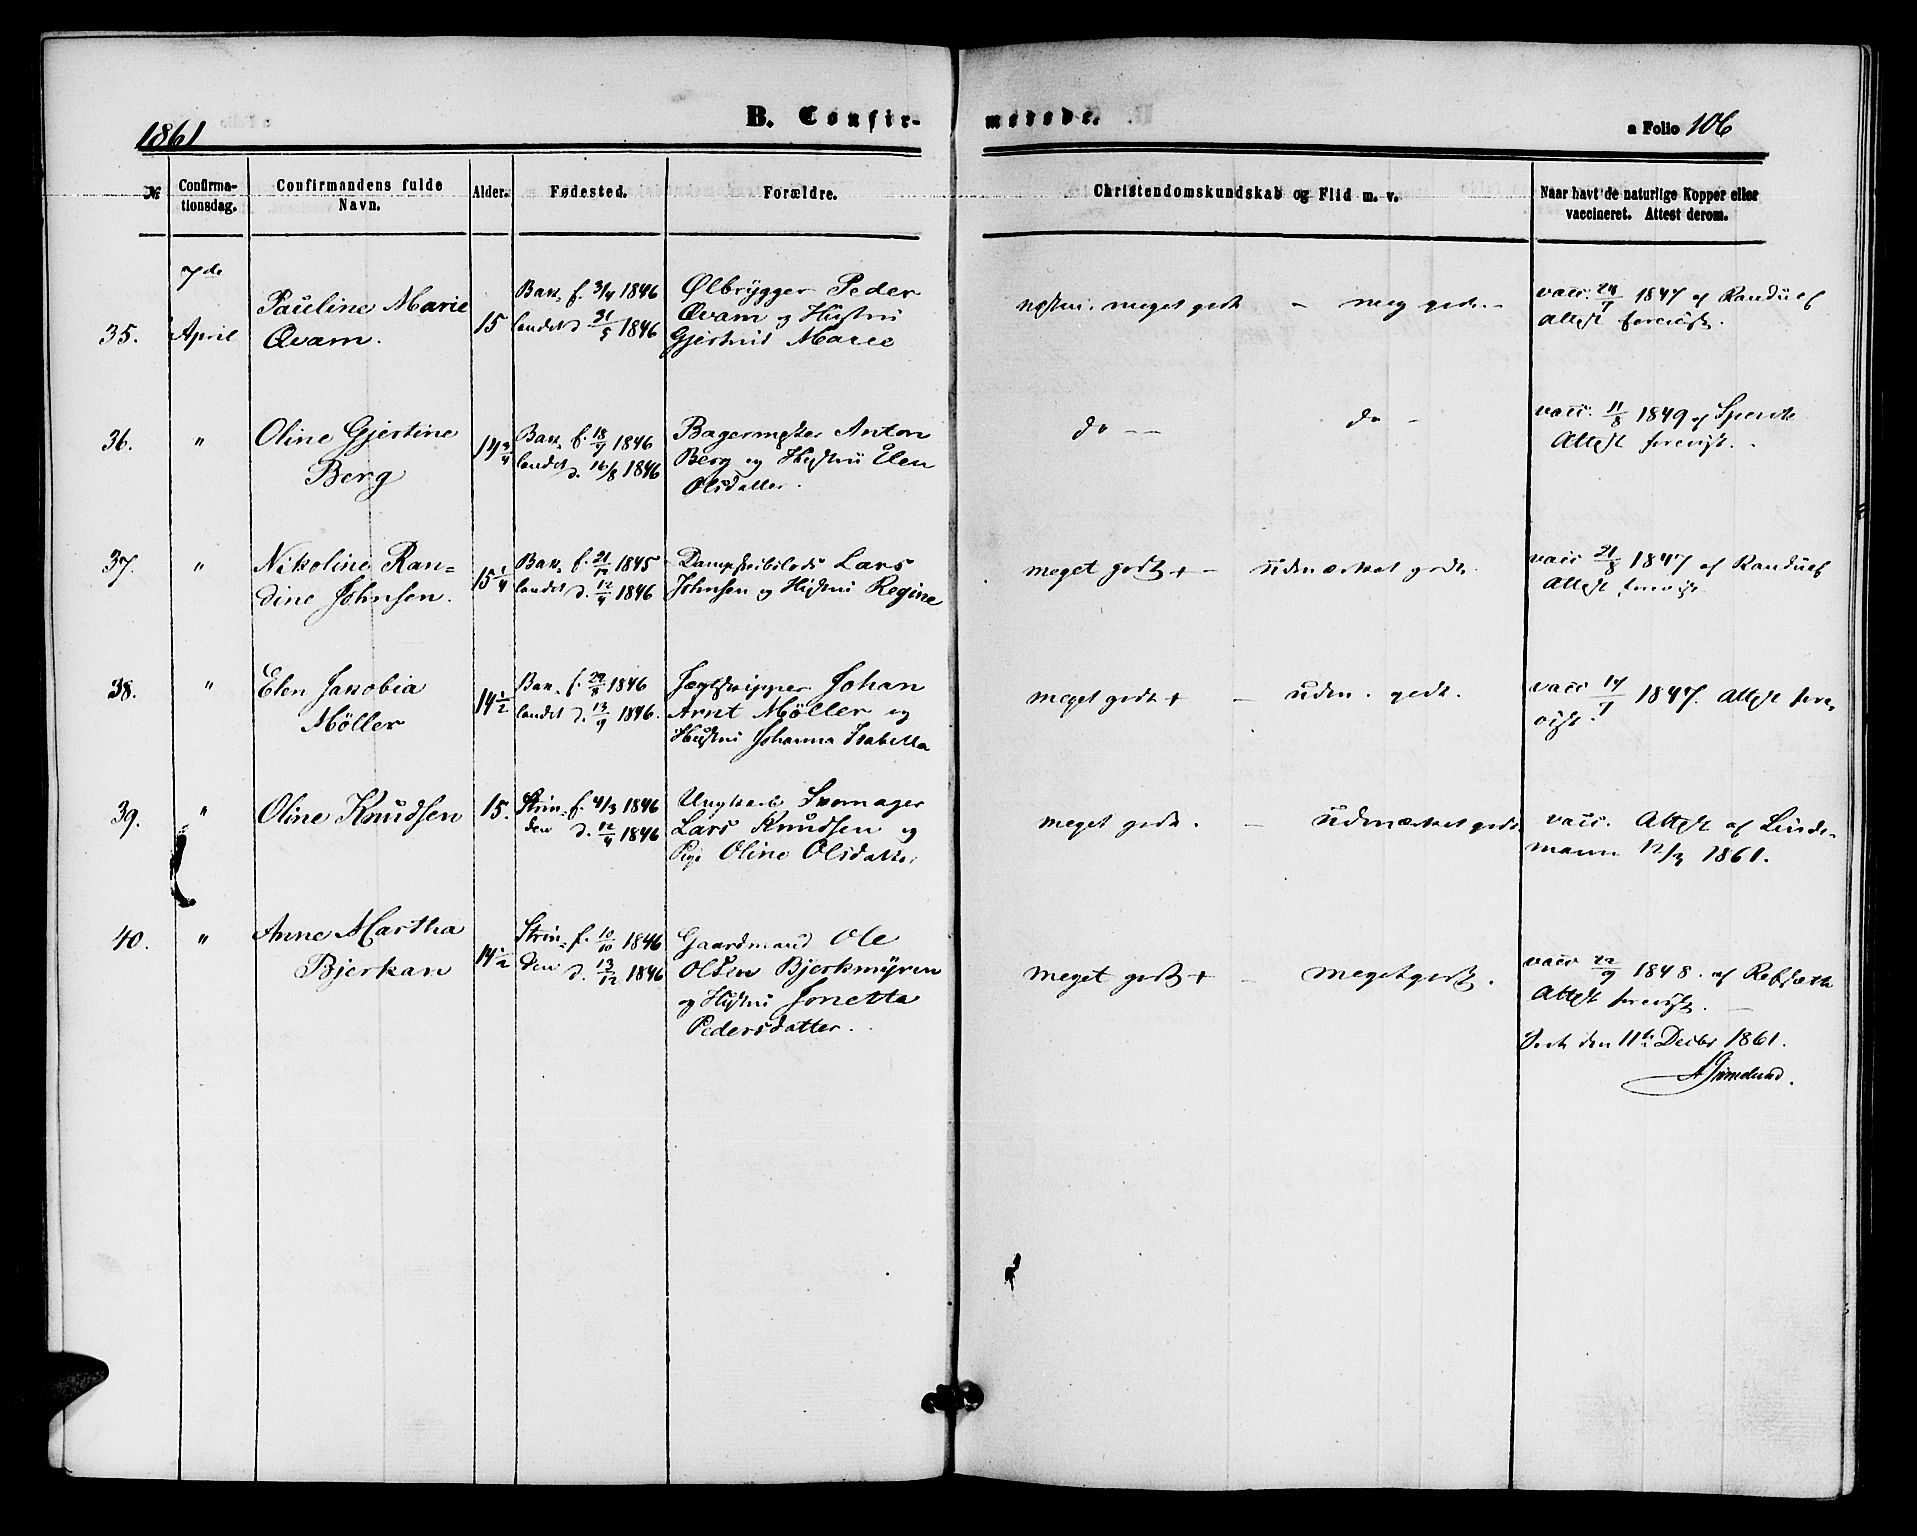 1861
B. Confir-
merede.
a Folio 106
№
Confirma-
tionsdag.
Confirmandens fulde
Navn.
Alder.
Fødested.
Forældre.
Christendomskundskab og Flid m. v.
Naar havt de naturlige Kopper eller
vaccineret. Attest derom.
35.
7de
April
Pauline Marie
Qvam.
15
Bak- f. 3/4 1846
landet d 31/5 1846
Ølbrygger Peder
Qvam og Hustru
Gjertrud Marie
meget godt - meg godt -
vacc. 1847 af Randulf
Attest forevist.
36.
"
Oline Gjertine
Berg
14 3/4
Bak- f. 1846
landet d. 16/8 1846
Bagermester Anton
Berg og Hustru Elen
Olsdatter.
do - -
do -
vacc. 11/8 1849 af
Attest forevist. -
37.
"
Nikoline Ran-
dine Johnsen.
15 1/4
Bak- f. 21/12 1845
landet d. 12/4 1846
Dampskibslods Lars
Johnsen og Hustru Regine
meget godt + - udmærket godt.
vacc 21/8 1847 af Randulf
Attest forevist.
38.
"
Elen Jakobia
Möller
14 1/2
Bak- f. 1846
landet d. 13/9 1846.
Jægtskipper Johan
Arnt Möller og
Hustru Johanna Isabella
meget godt + - udm. godt.
vacc 1847. Attest fore-
vist.
39.
"
Oline Knudsen
15.
Strin- f. 4/3 1846
den d. 12/4 1846
Ungkarl Skomager
Lars Knudsen og
Pige Oline Olsdatter
meget godt. - udmærket godt.
vacc. Attest af Linde-
mann 12/3 1861.
40.
"
Anne Martha
Bjerkan
14 1/2
Strin- f. 10/10 1846
den d. 13/12 1846
Gaardmand Ole
Olsen Bjerkmyren
og Hustru Jonetta
Pedersdatter.
meget godt + - meget godt.
vacc 22/9 1848. af
Attest forevist. -
Seet den 11te Decbr 1861.